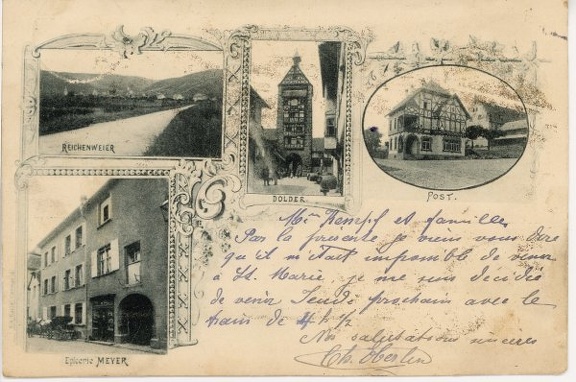 REICHENWEIER
DOLDER
POST.
Epicerie MEYER
Mr Kempf et famille
Par la présente je viens vous dire
qu'il m'était impossible de venir
à Ste Marie je me suis décidée
de venir Jeudi prochain avec le
train de 4 h ½
Nos salutations
Ch. Oberlin